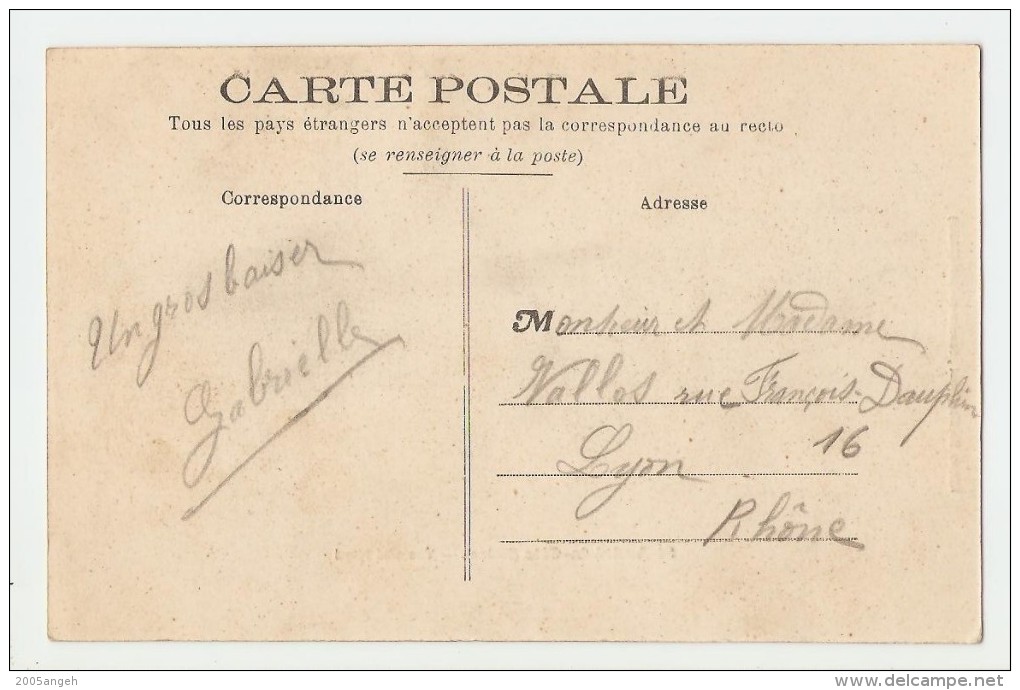 CARTE POSTALE
Tous les pays étrangers n'acceptent pas la correspondance au recto
(se renseigner à la poste)
Correspondance
Un gros baiser
Gabrielle
Adresse
Monsieur et Madame
rue François-Dauphin
16
Lyon
Rhône
2005sangeh
delcampe.net